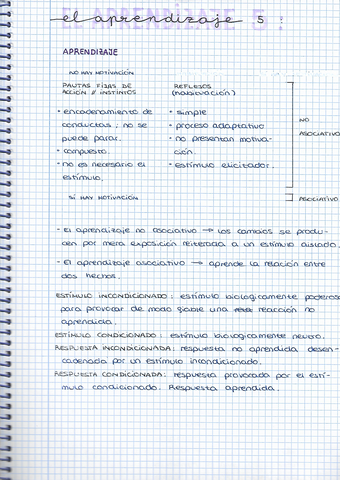 EL APRENDIZAJE 5 :
el aprendizaje 5 :
APRENDIZAJE
NO HAY MOTIVACIÓN
PAUTAS FIJAS DE ACCIÓN // INSTINTOS
· encadenamiento de
conductas, no se
puede parar.
· compuesto.
· no es necesario el
estímulo.
REFLEJOS
(habituación)
· simple
· proceso adaptativo
· no presentan motiva-
ción.
· estímulo elicitador.
NO
ASOCIATIVO
SÍ HAY MOTIVACIÓN
ASOCIATIVO
- El aprendizaje no asociativo → los cambios se produ-
cen por mera exposición reiterada a un estímulo aislado.
- El aprendizaje asociativo → aprende la relación entre
dos hechos.
ESTÍMULO INCONDICIONADO: estímulo biológicamente poderoso
para provocar de modo fiable una reacción no
aprendida.
ESTÍMULO CONDICIONADO: estímulo biológicamente neutro.
RESPUESTA INCONDICIONADA: respuesta no aprendida desen-
cadenada por un estímulo incondicionado.
RESPUESTA CONDICIONADA: respuesta provocada por el estí-
mulo condicionado. Respuesta aprendida.